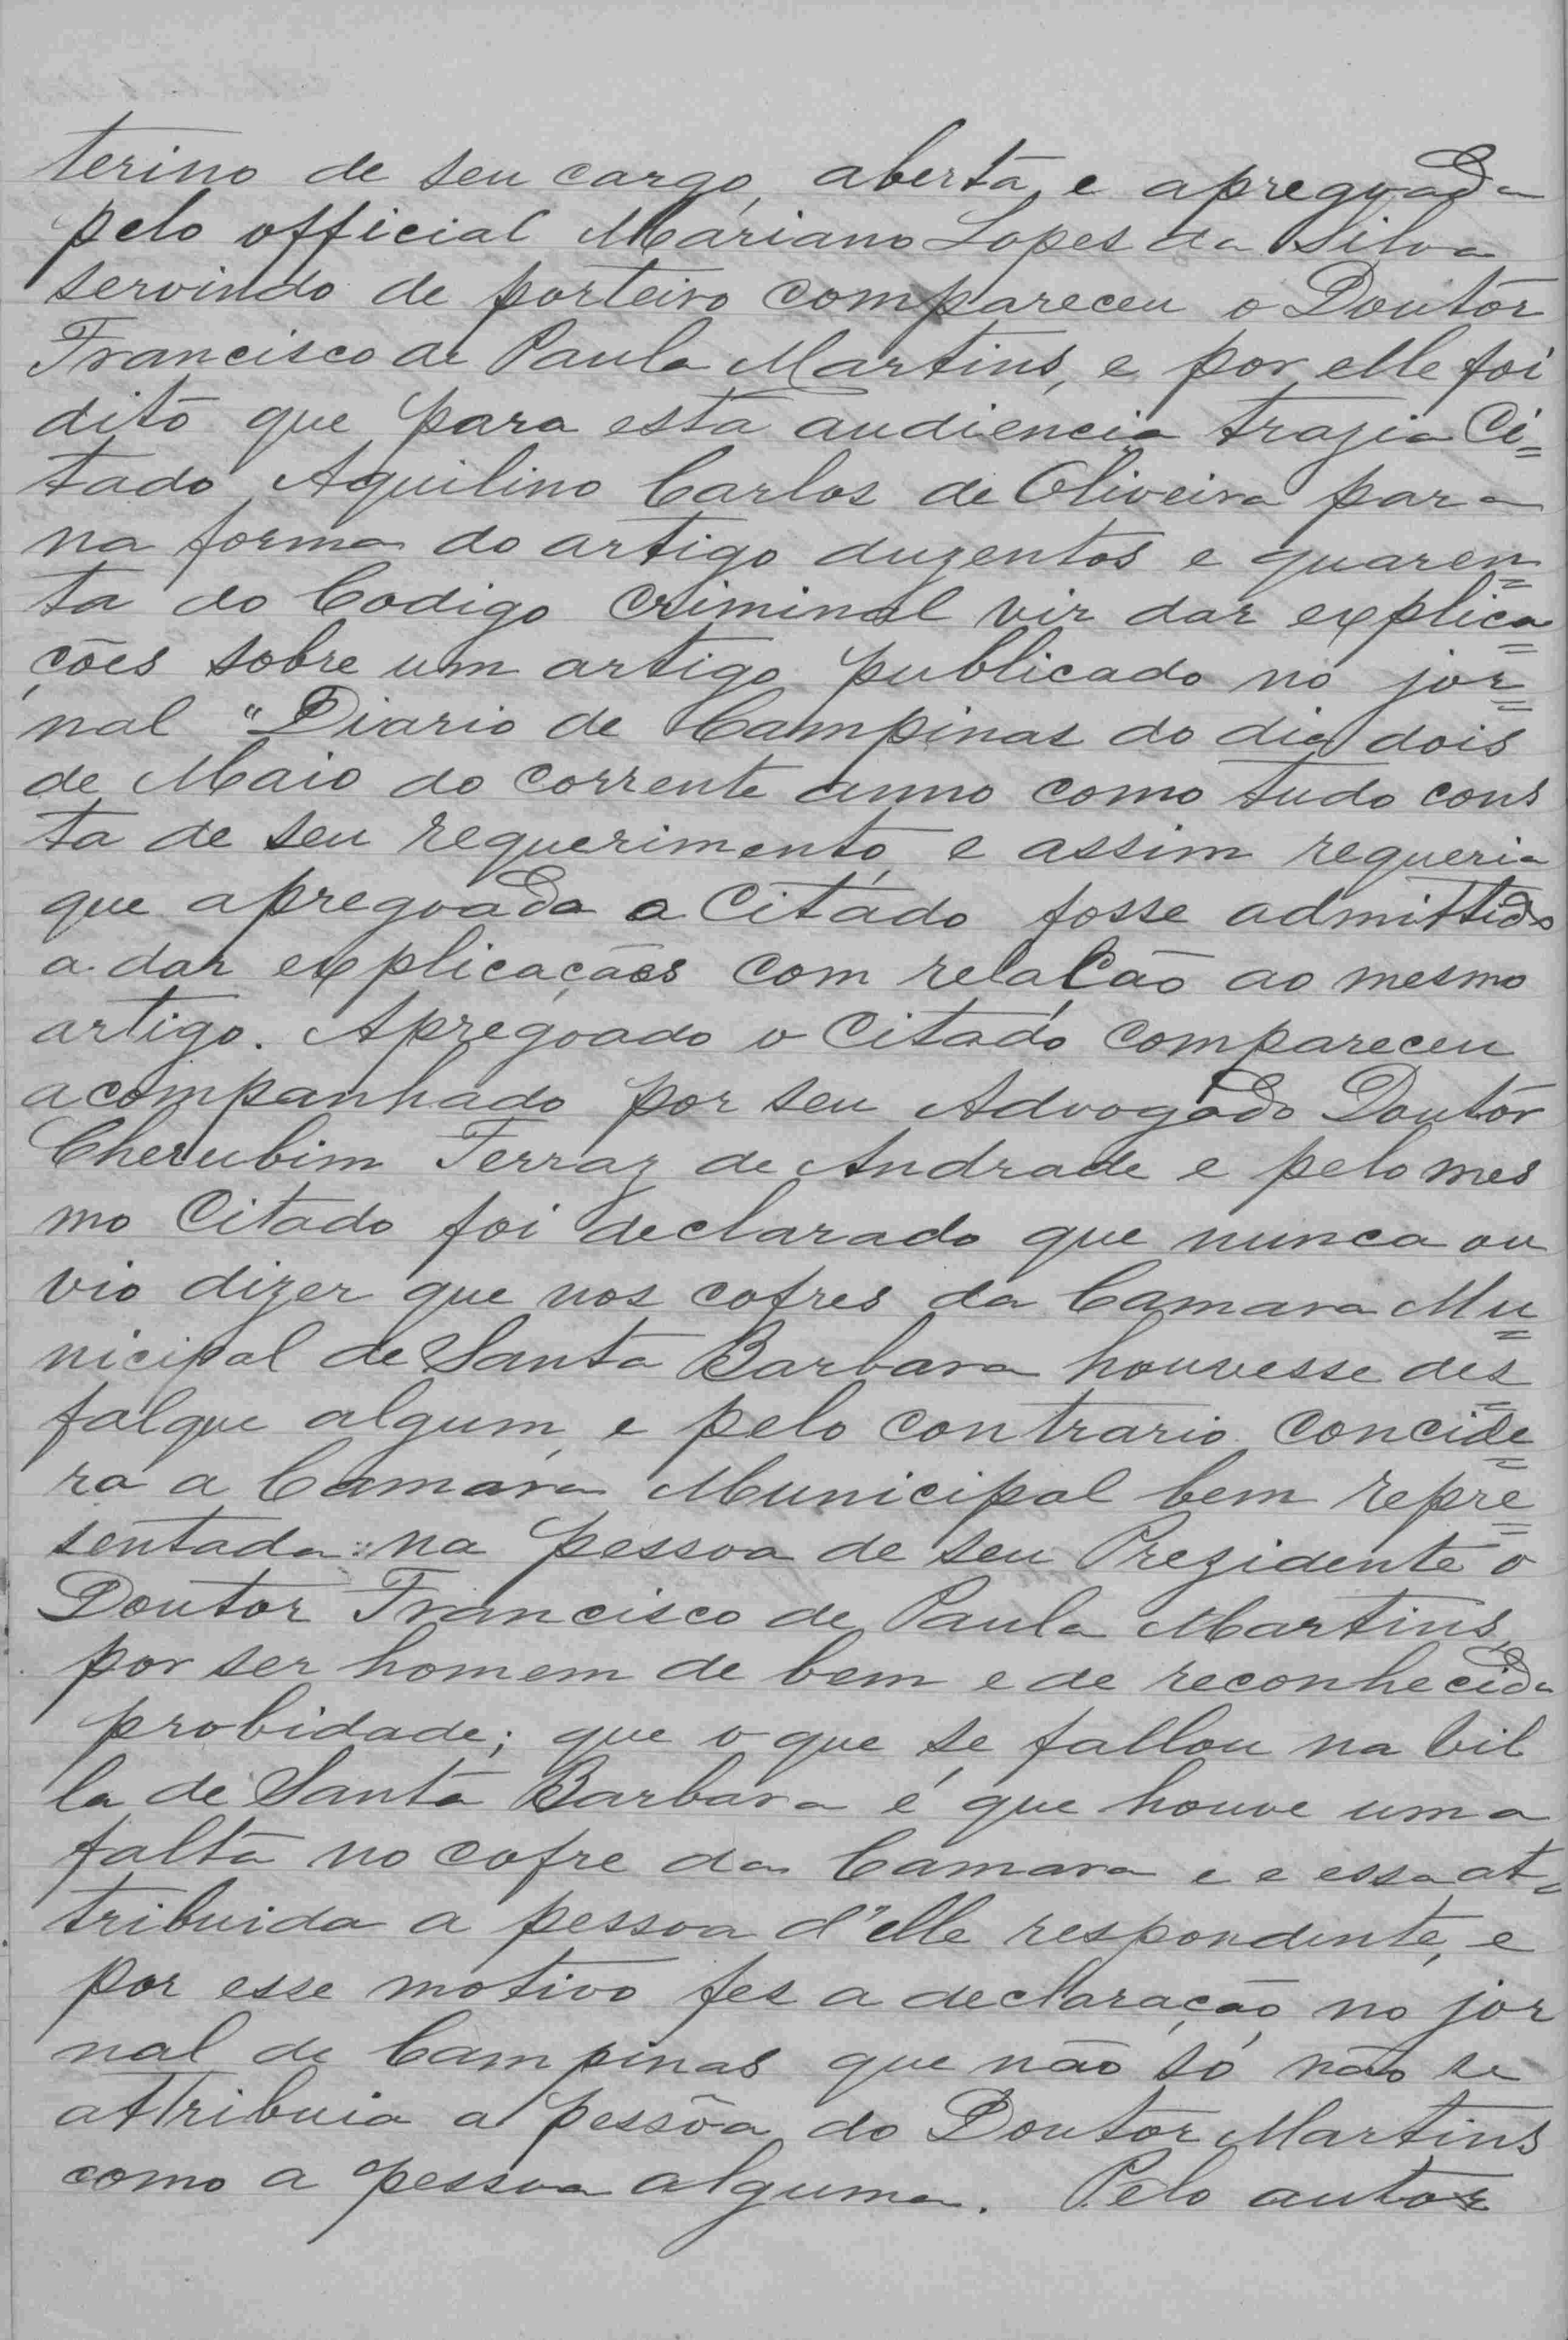 terino de seu cargo, aberta, e apregoada
pelo official Mariano Lopes da Silva
servindo de porteiro compareceu o Doutor
Francisco de Paula Martins, e por elle foi
dito que para esta audiencia trazia Ci=
tado Aquilino Carlos de Oliveira para
na forma do artigo duzentos e quaren=
ta do Codigo Criminal vir dar explica=
ções sobre um artigo publicado no jor=
nal "Diario de Campinas do dia dois
de Maio do corrente anno como tudo cons
ta de seu requerimento, e assim requeria
que apregoada o Citado fosse admittido
a dar explicaçãos com relacão ao mesmo
artigo. Apregoado o Citado compareceu
acompanhado por seu Advogado Doutor
Cherubim Ferraz de Andrade e pelo mes
mo Citado foi declarado que nunca ou
vio dizer que nos cofres da Camara Mu=
nicipal de Santa Barbara houvesse des=
falque algum, e pelo contrario concide=
ra a Camara Municipal bem repre=
sentada na pessoa de seu Prezidente o
Doutor Francisco de Paula Martins,
por ser homem de bem e de reconhecida
probidade; que o que se fallou na Vil
la de Santa Barbara é que houve uma
falta no cofre da Camara e e essa at=
tribuida a pessoa d'elle respondente, e
por esse motivo fes a declaração no jor
nal de Campinas que não só não se
attribuia a pessôa do Doutor Martins
como a pessoa alguma. Pelo autor